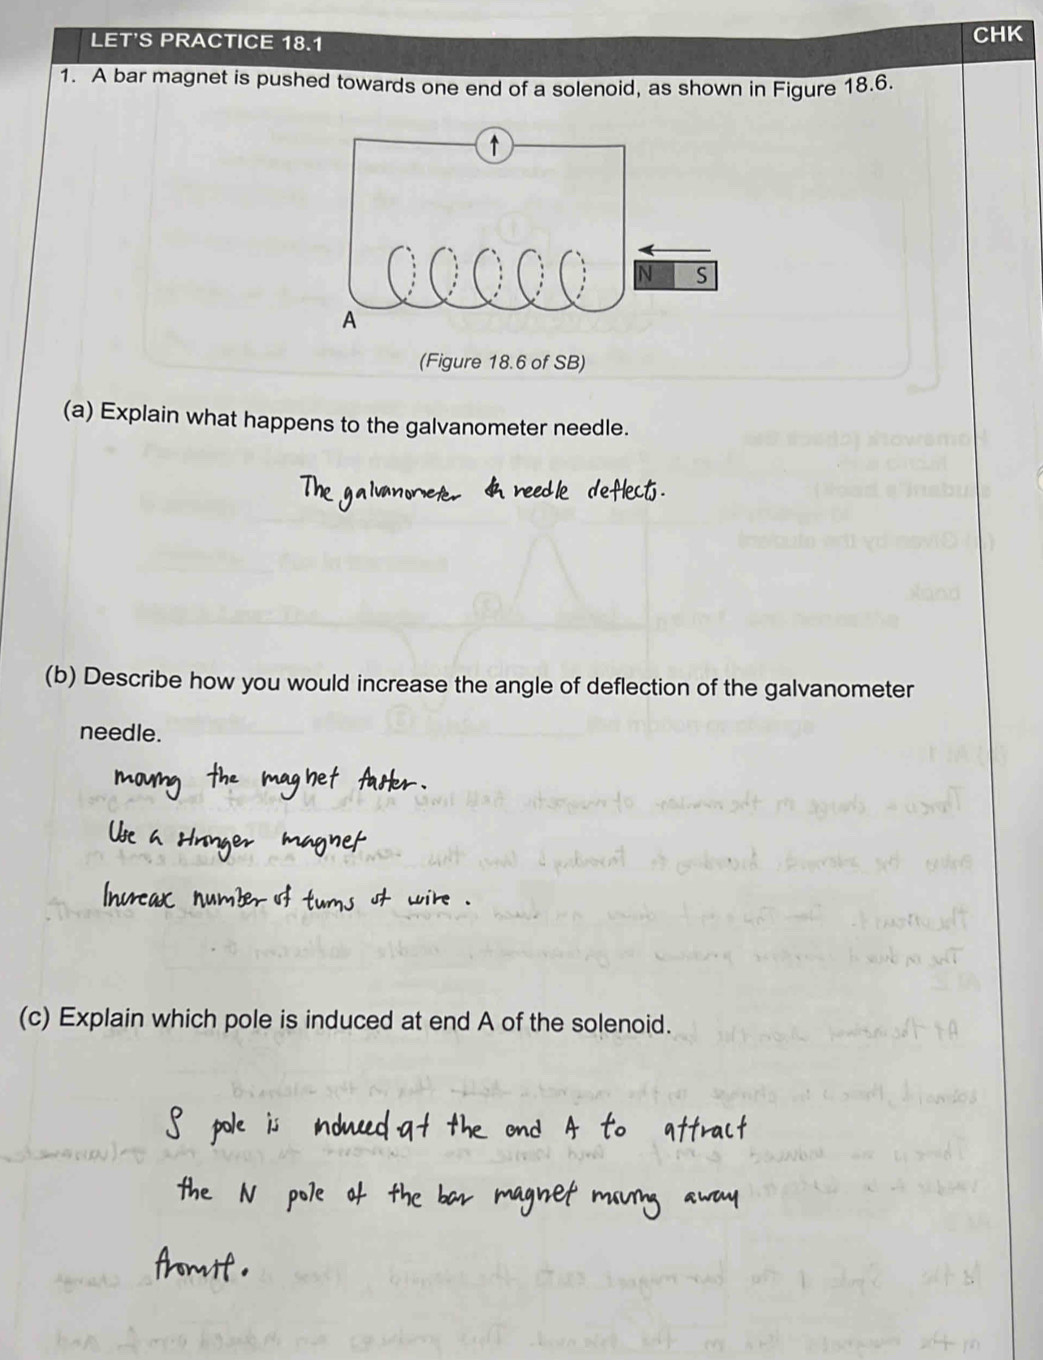 LET'S PRACTICE 18.1
CHK
1. A bar magnet is pushed towards one end of a solenoid, as shown in Figure 18.6.
N S
A
(Figure 18.6 of SB)
(a) Explain what happens to the galvanometer needle.
The galvanometer needle deflects.
(b) Describe how you would increase the angle of deflection of the galvanometer
needle.
moving the magnet faster.
Use a stronger magnet
Increase number of turns of wire.
(c) Explain which pole is induced at end A of the solenoid.
S pole is induced at the end A to attract
the N pole of the bar magnet moving away
from it.